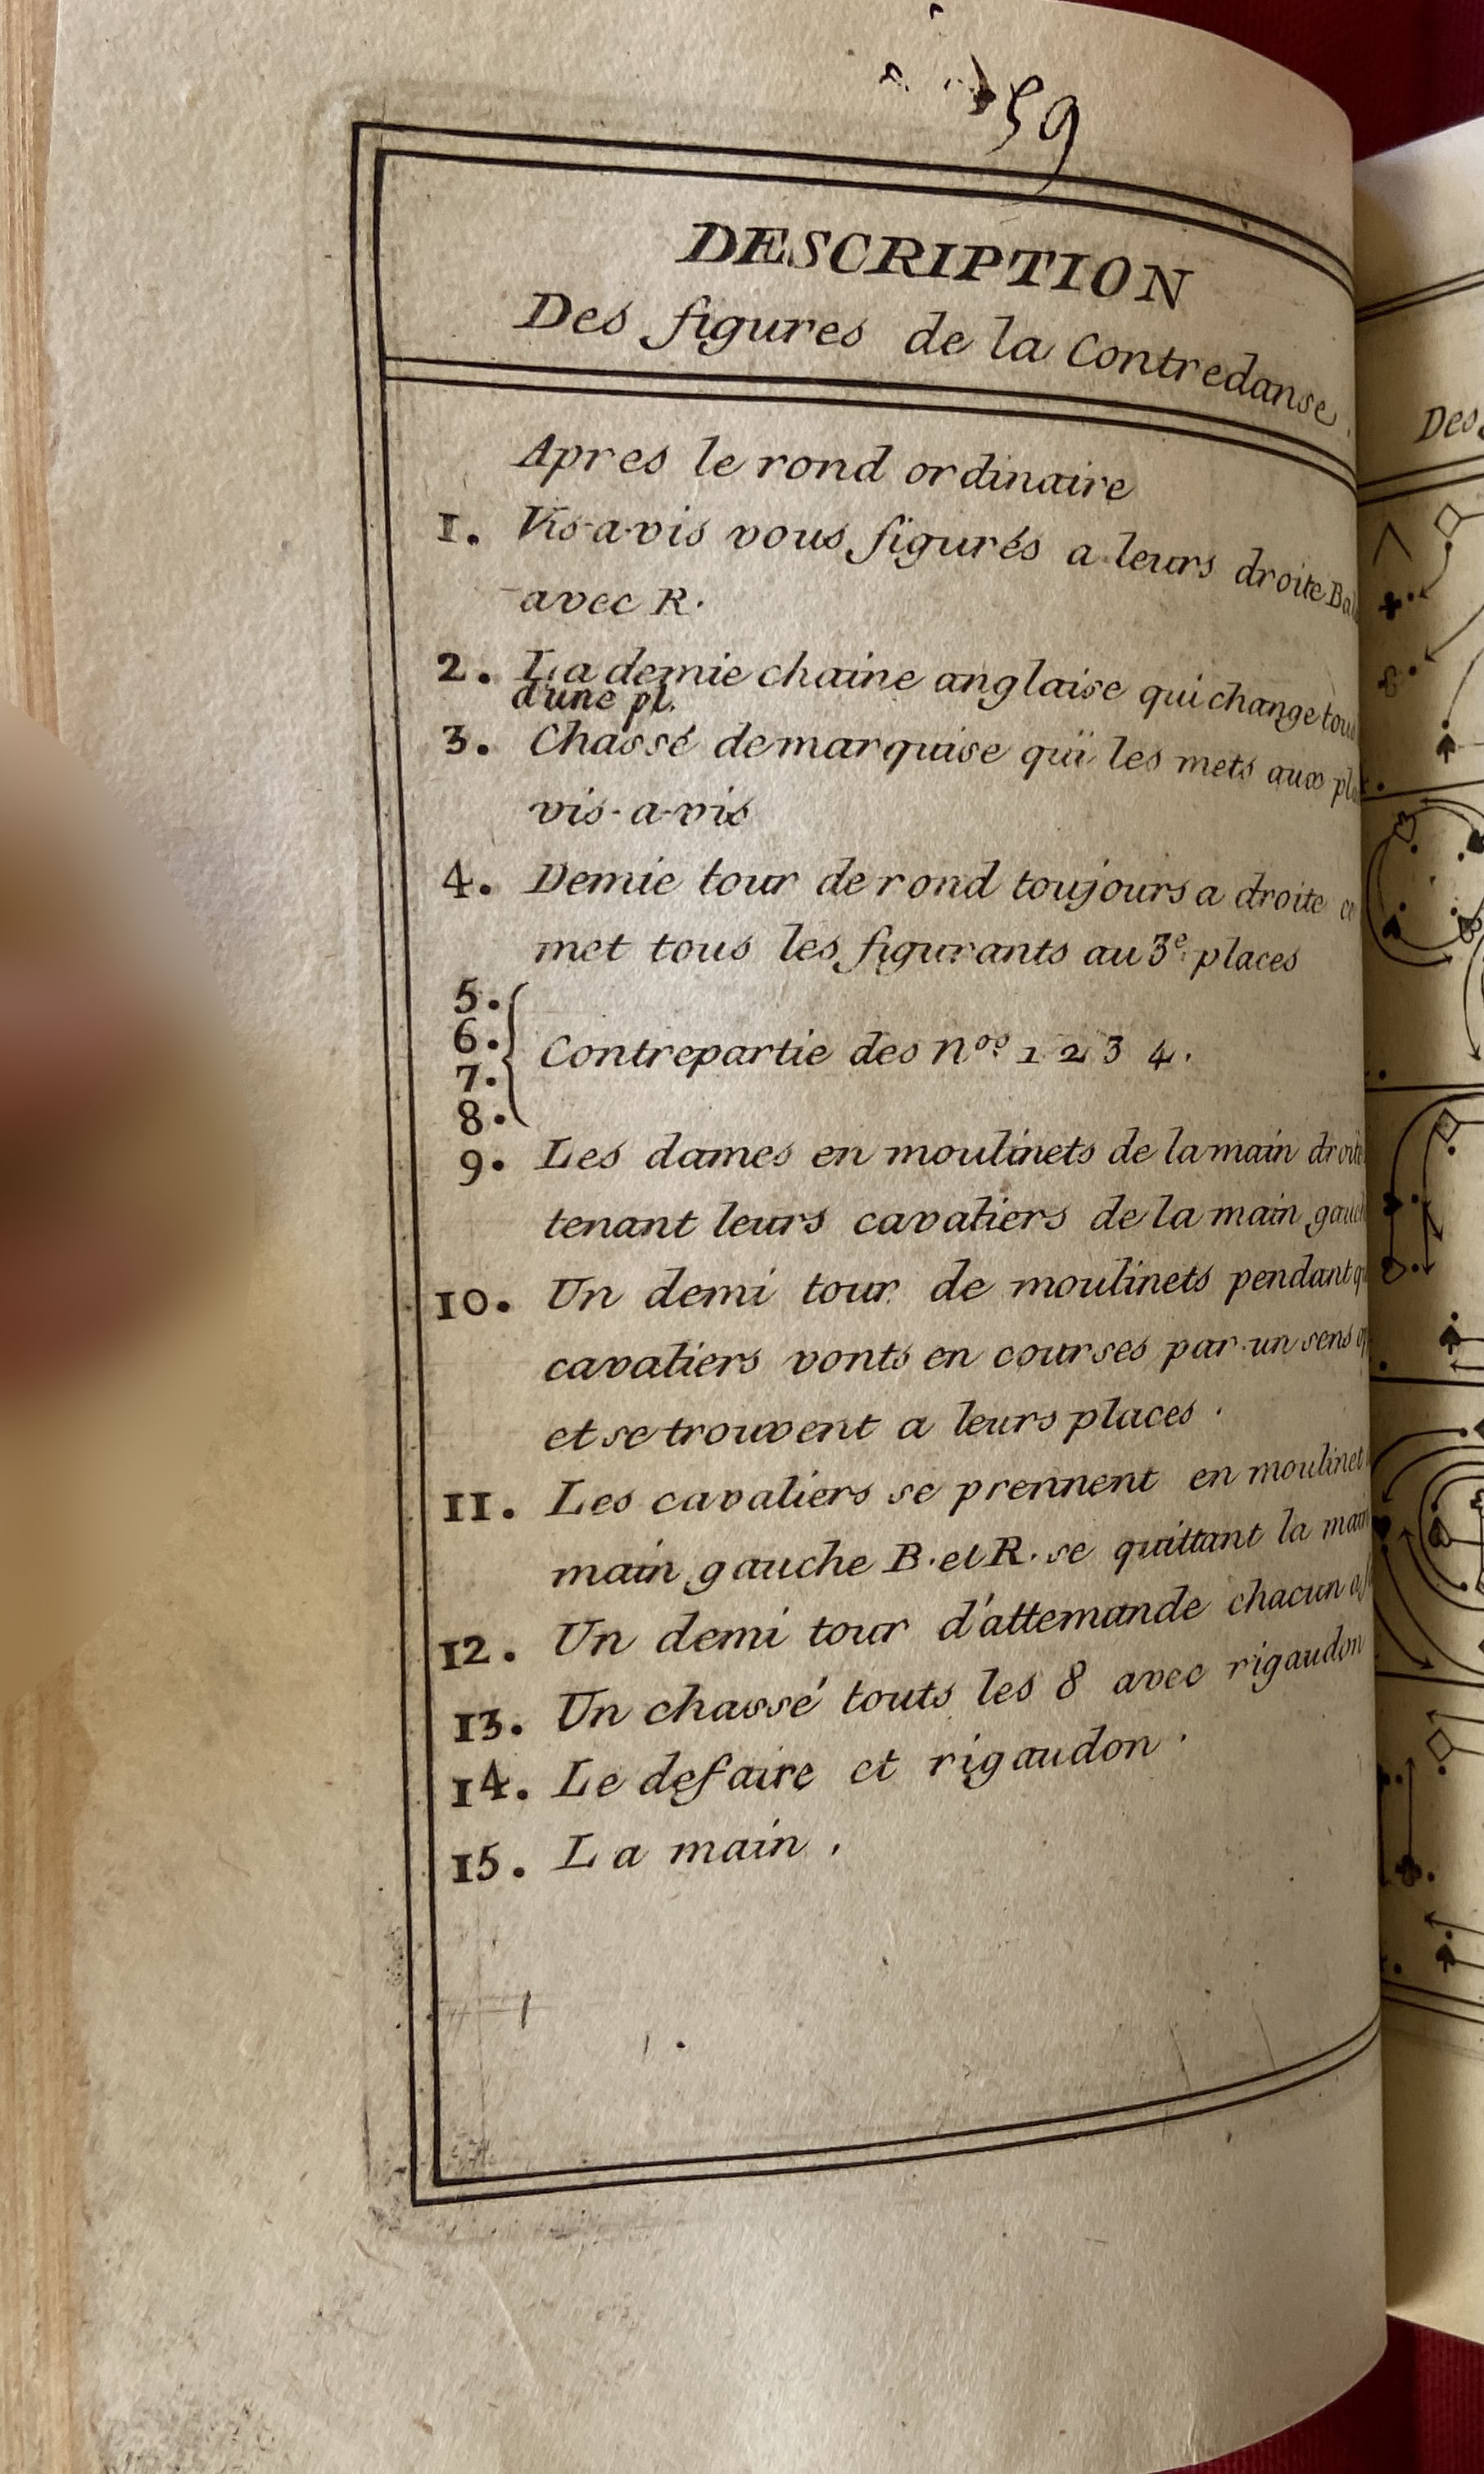 59
DESCRIPTION
Des figures de la Contredanse.
Apres le rond ordinaire
1. Vis-a-vis vous figurés a leurs droite
avec R.
2. La demie chaine anglaise qui change
d'une pl.
3. Chassé de marquise qui les mets aux
vis-a-vis
4. Demie tour de rond toujours a droite
met tous les figurants au 3e. places
5.
6.
7.
8.
Contrepartie des nos. 1 2 3 4.
9. Les dames en moulinets de la main
tenant leurs cavaliers de la main
10. Un demi tour de moulinets pendant
cavaliers vonts en courses par un sens
et se trouvent a leurs places.
11. Les cavaliers se prennent en moulinet
main gauche B. et R. se quittant la
12. Un demi tour d'allemande chacun
13. Un chassé touts les 8 avec rigaudon
14. Le defaire et rigaudon.
15. La main.
Des